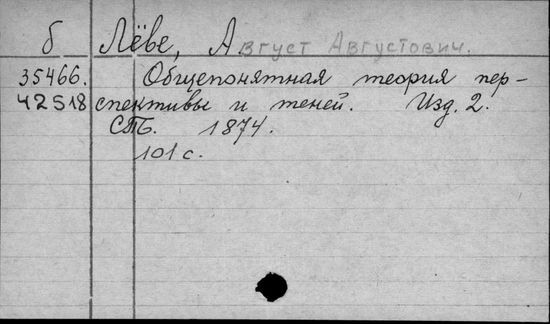 б Лёве, Август Августович.
35466. Общепонятная теория пер-
42518 спективы и теней. Изд. 2.
СПБ. 1874.
101 с.